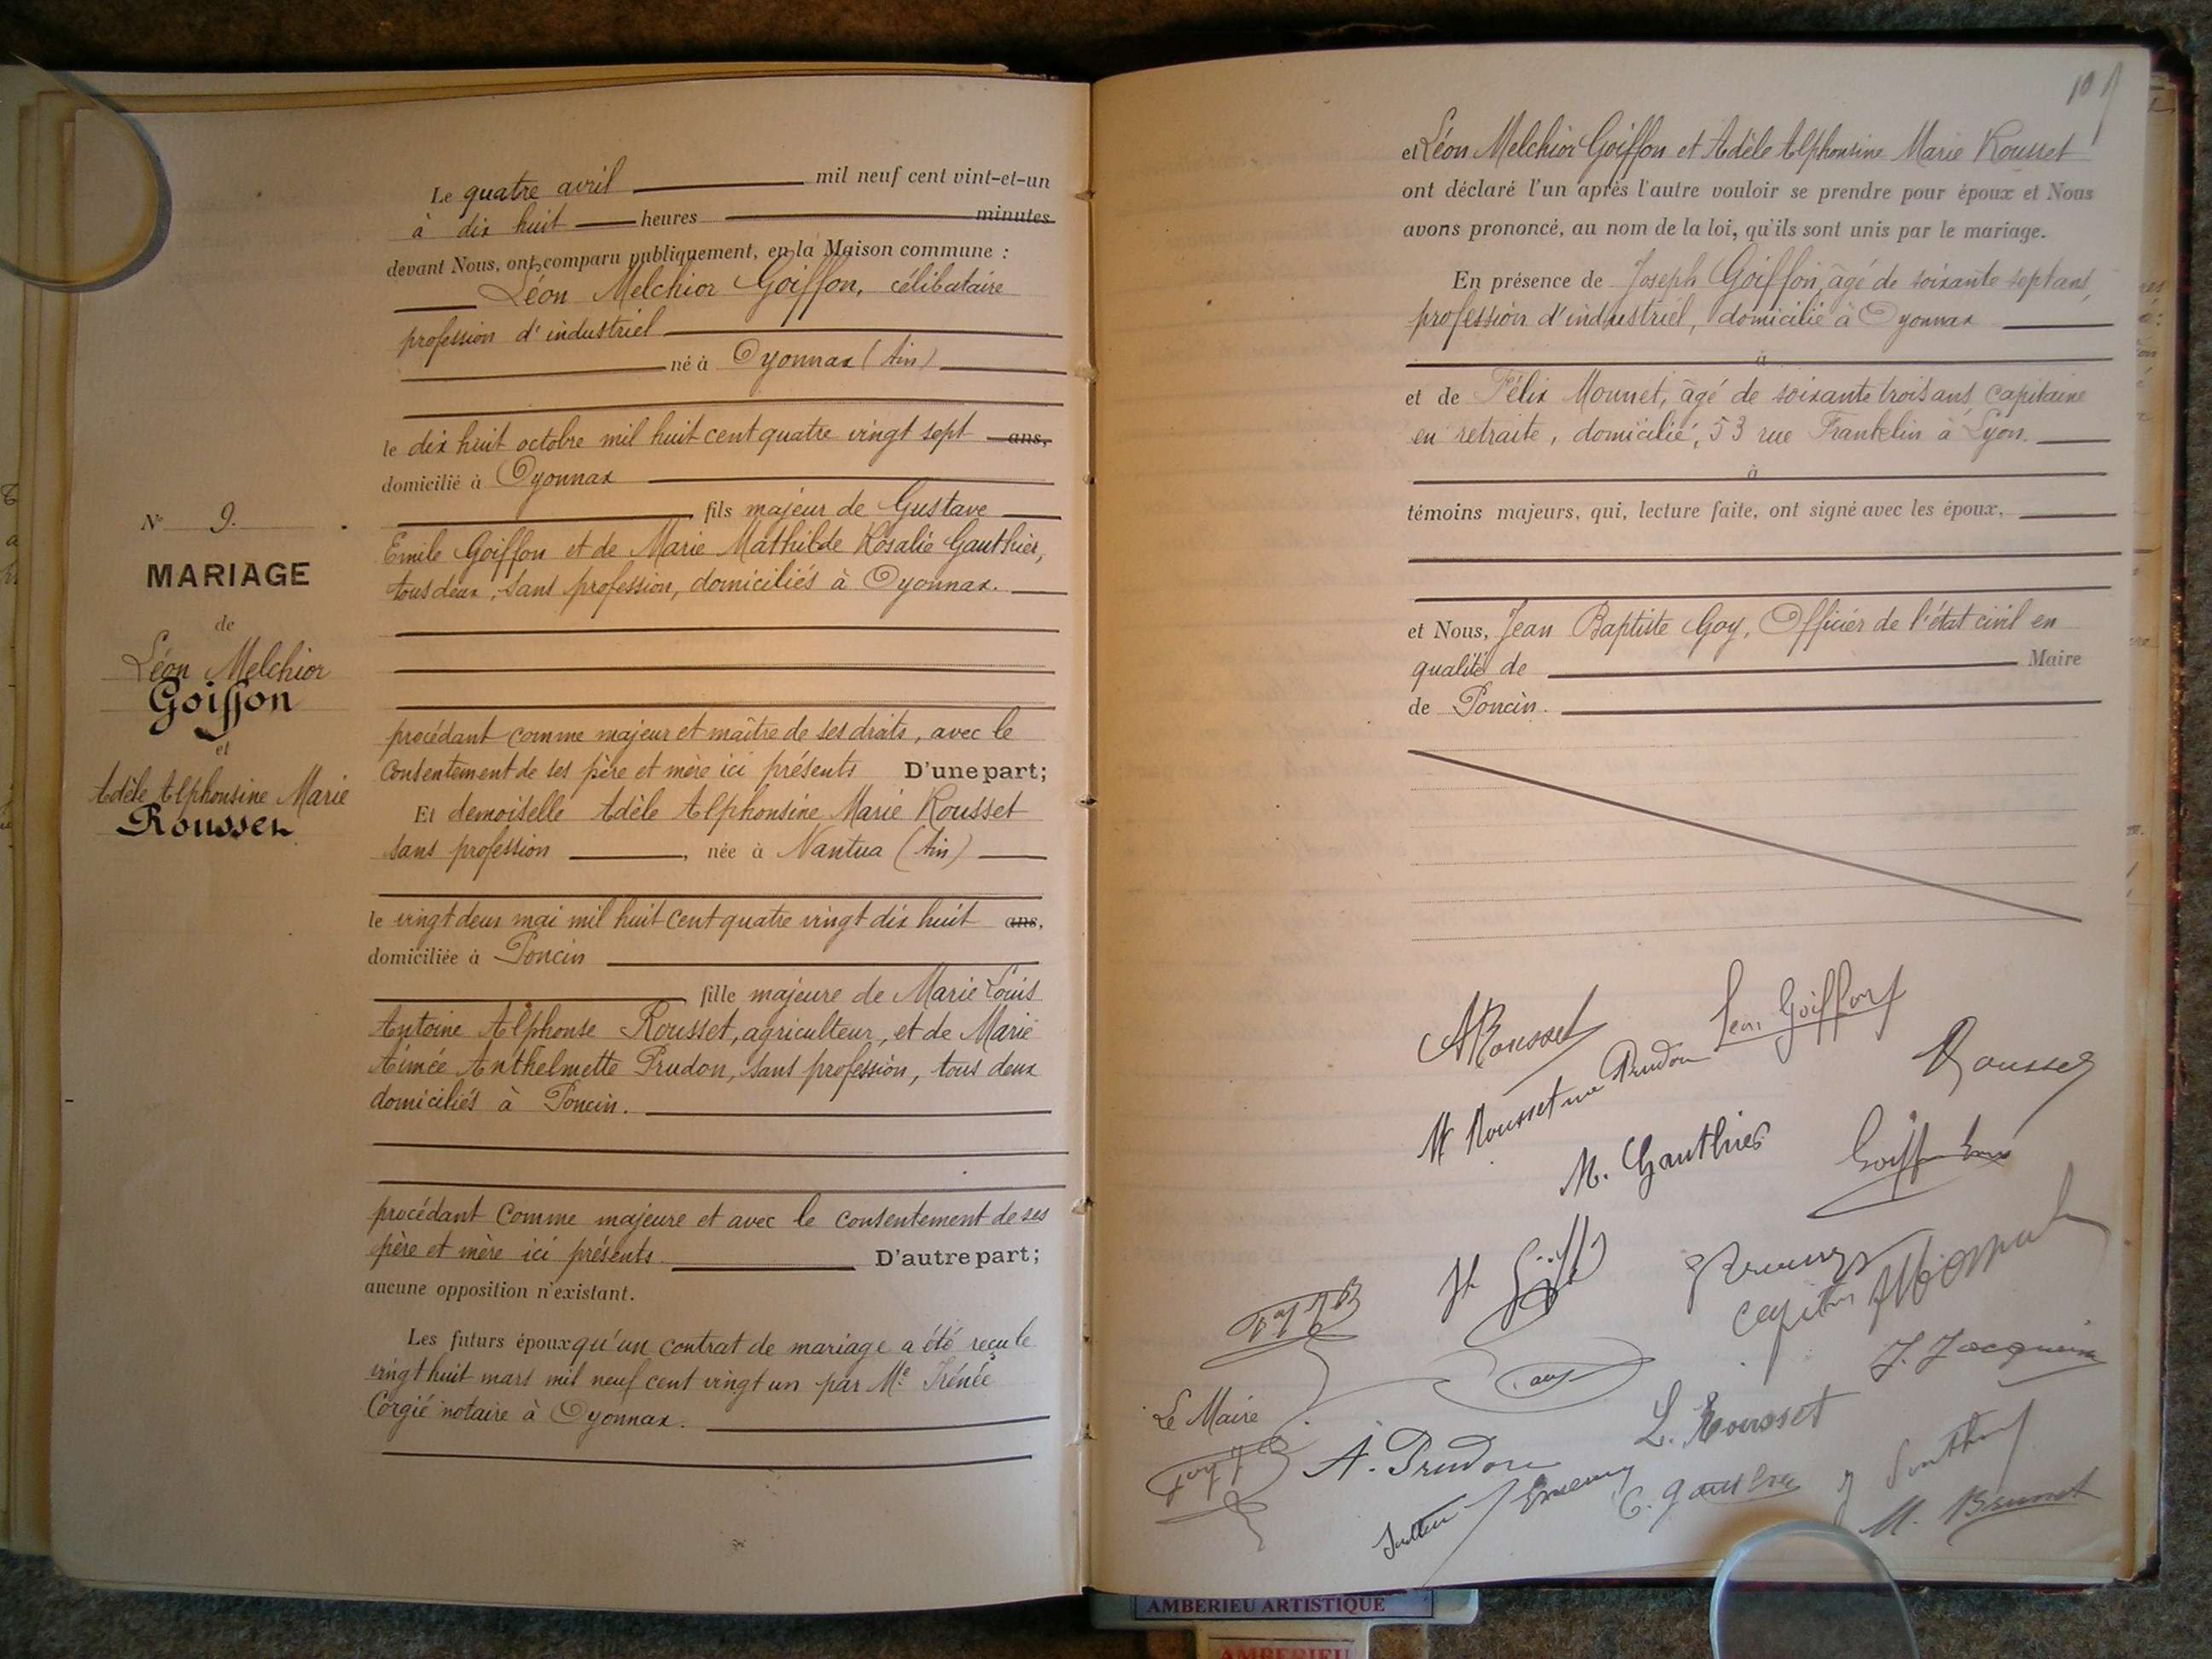 N° 9.
MARIAGE
de
Léon Melchior
Goiffon
et
Adèle Alphonsine Marie
Rousset
Le quatre avril mil neuf cent vint-et-un
à dix huit heures minutes
devant Nous, ont comparu publiquement, en la Maison commune :
Léon Melchior Goiffon, célibataire
profession d'industriel
né à Oyonnax (Ain)
le dix huit octobre mil huit cent quatre vingt sept ans,
domicilié à Oyonnax
fils majeur de Gustave
Emile Goiffon et de Marie Mathilde Rosalie Gauthier,
tous deux, sans profession, domiciliés à Oyonnax.
procédant comme majeur et maître de ses droits, avec le
consentement de ses père et mère ici présents D'une part;
Et demoiselle Adèle Alphonsine Marie Rousset
sans profession, née à Nantua (Ain)
le vingt deux mai mil huit cent quatre vingt dix huit ans,
domiciliée à Poncin
fille majeure de Marie Louis
Antoine Alphonse Rousset, agriculteur, et de Marie
Aimée Anthelmette Prudon, sans profession, tous deux
domiciliés à Poncin.
procédant comme majeure et avec le consentement de ses
père et mère ici présents D'autre part;
aucune opposition n'existant.
Les futurs époux qu'un contrat de mariage a été reçu le
vingt huit mars mil neuf cent vingt un par Me Irénée
Corgié notaire à Oyonnax.
et Léon Melchior Goiffon et Adèle Alphonsine Marie Rousset
ont déclaré l'un après l'autre vouloir se prendre pour époux et Nous
avons prononcé, au nom de la loi, qu'ils sont unis par le mariage.
En présence de Joseph Goiffon, âgé de soixante sept ans,
profession d'industriel, domicilié à Oyonnax
à
et de Félix Monnet, âgé de soixante trois ans, capitaine
en retraite, domicilié, 53 rue Franklin à Lyon.
à
témoins majeurs, qui, lecture faite, ont signé avec les époux,
et Nous, Jean Baptiste Goy, Officier de l'état civil en
qualité de Maire
de Poncin.
A Rousset
Léon Goiffon
M Rousset née Prudon
Rousset
M. Gauthier
J. Jacquem
Le Maire
L. Rousset
A. Prudon
M. Brunet
AMBERIEU ARTISTIQUE
AMBERIEU